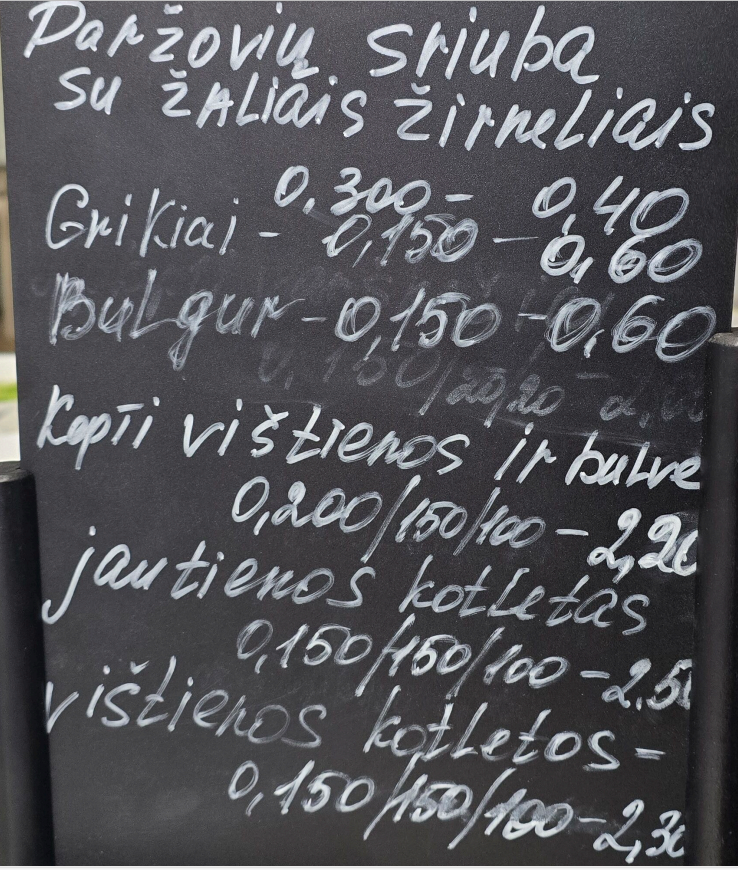 Daržovių sriuba
su žaliais žirneliais
0,300 - 0,40
Grikiai - 0,150 - 0,60
Bulgur - 0,150 - 0,60
0,150/20/20 - 2,00
Kepti vištienos ir bulve
0,200/150/100 - 2,20
jautienos kotletas
0,150/150/100 - 2.50
vištienos kotletos -
0,150/150/100 - 2,30